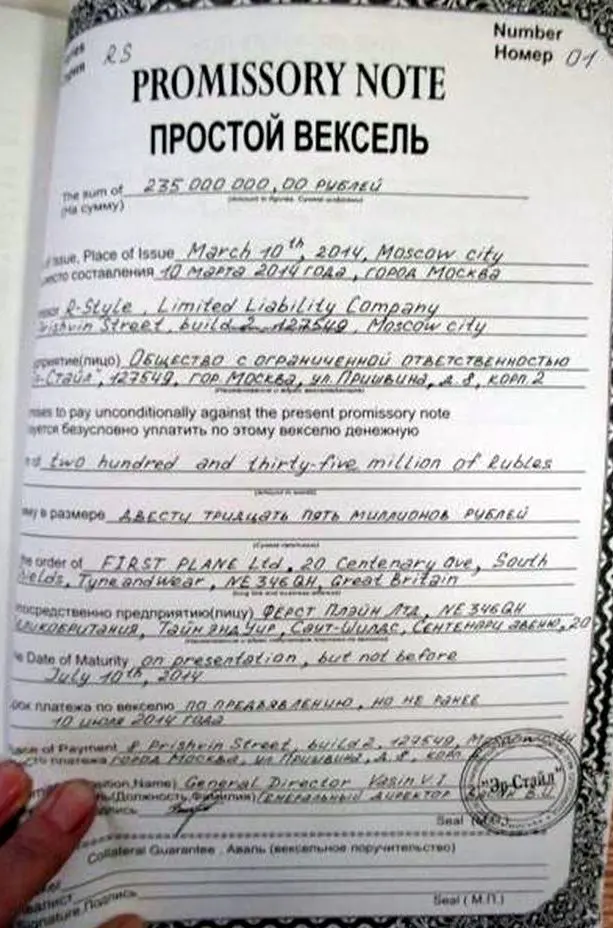 Number
RS Номер 01
PROMISSORY NOTE
ПРОСТОЙ ВЕКСЕЛЬ
The sum of 235 000 000,00 РУБЛЕЙ
(На сумму)
issue, Place of Issue March 10th, 2014, Moscow city
место составления 10 МАРТА 2014 ГОДА, ГОРОД МОСКВА
R-Style, Limited Liability Company
Prishvin Street, build 2, 127549, Moscow city
приятие(лицо) ОБЩЕСТВО С ОГРАНИЧЕННОЙ ОТВЕТСТВЕННОСТЬЮ
-СТАЙЛ", 127549, ГОР. МОСКВА, УЛ. ПРИШВИНА, Д. 8, КОРП. 2
ises to pay unconditionally against the present promissory note
уется безусловно уплатить по этому векселю денежную
two hundred and thirty-five million of Rubles
му в размере ДВЕСТИ ТРИДЦАТЬ ПЯТЬ МИЛЛИОНОВ РУБЛЕЙ
he order of FIRST PLANE Ltd, 20 Centenary Ave, South
ields, Tyne and Wear, NE346QH, Great Britain
посредственно предприятию(лицу) ФЕРСТ ПЛЭЙН ЛТД, NE346QH
ЛИКОБРИТАНИЯ, ТАЙН ЭНД УИР, САУТ-ШИЛДС, СЕНТЕНАРИ АВЕНЮ, 20
e Date of Maturity on presentation, but not before
July 10th, 2014
рок платежа по векселю ПО ПРЕДЪЯВЛЕНИЮ, НО НЕ РАНЕЕ
10 ИЮЛЯ 2014 ГОДА
ace of Payment 8 Prishvin Street, build 2, 127549, Moscow city
сто платежа ГОРОД МОСКВА, УЛ. ПРИШВИНА, Д. 8, КОРП. 2
osition, Name) General Director Vasin V.I
(Должность, Фамилия) ГЕНЕРАЛЬНЫЙ ДИРЕКТОР В.И.
"Эр-Стайл"
дпись Seal (М.П.)
Collateral Guarantee . Аваль (вексельное поручительство)
Signature Подпись Seal (М.П.)